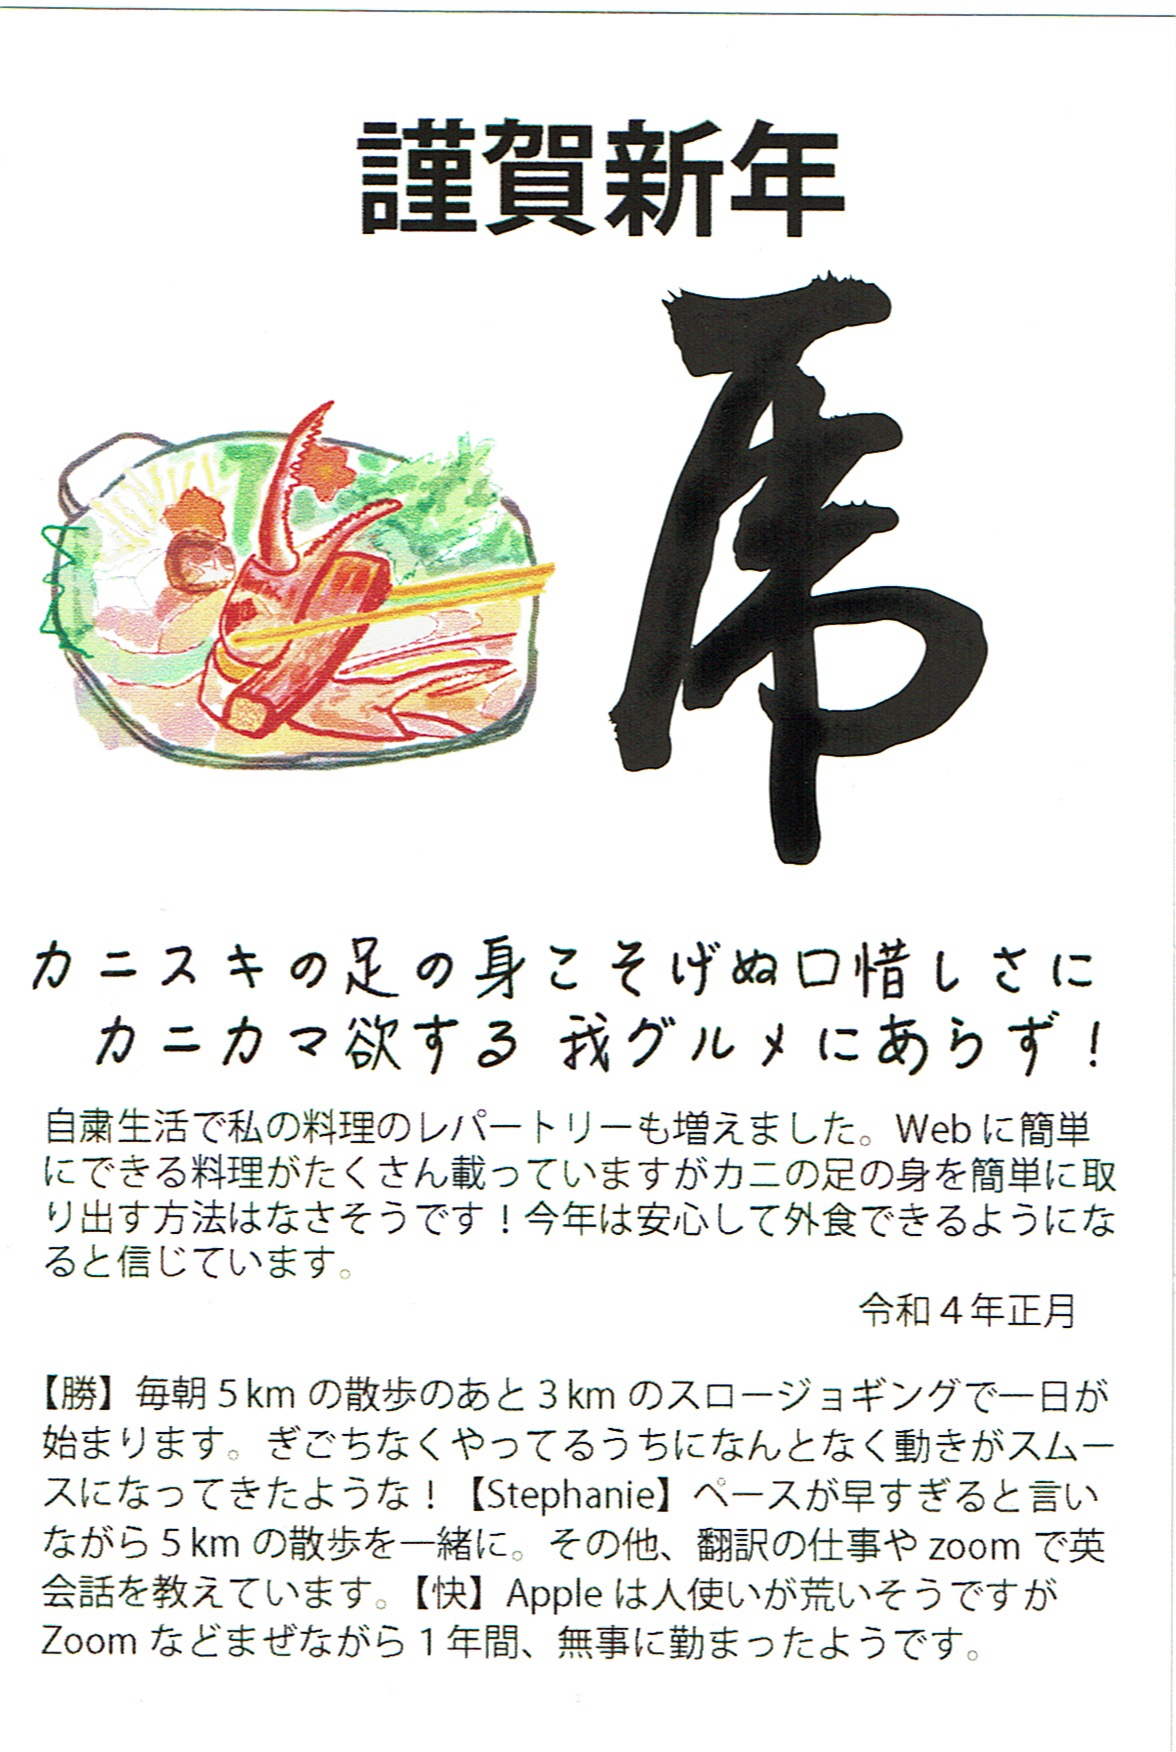 謹賀新年
虎
カニスキの足の身こそげぬ口惜しさに
カニカマ欲する 我グルメにあらず！
自粛生活で私の料理のレパートリーも増えました。Webに簡単
にできる料理がたくさん載っていますがカニの足の身を簡単に取
り出す方法はなさそうです！今年は安心して外食できるようにな
ると信じています。
令和４年正月
【勝】毎朝5kmの散歩のあと3kmのスロージョギングで一日が
始まります。ぎごちなくやってるうちになんとなく動きがスムー
スになってきたような！【Stephanie】ペースが早すぎると言い
ながら5kmの散歩を一緒に。その他、翻訳の仕事やzoomで英
会話を教えています。【快】Appleは人使いが荒いそうですが
Zoomなどまぜながら1年間、無事に勤まったようです。